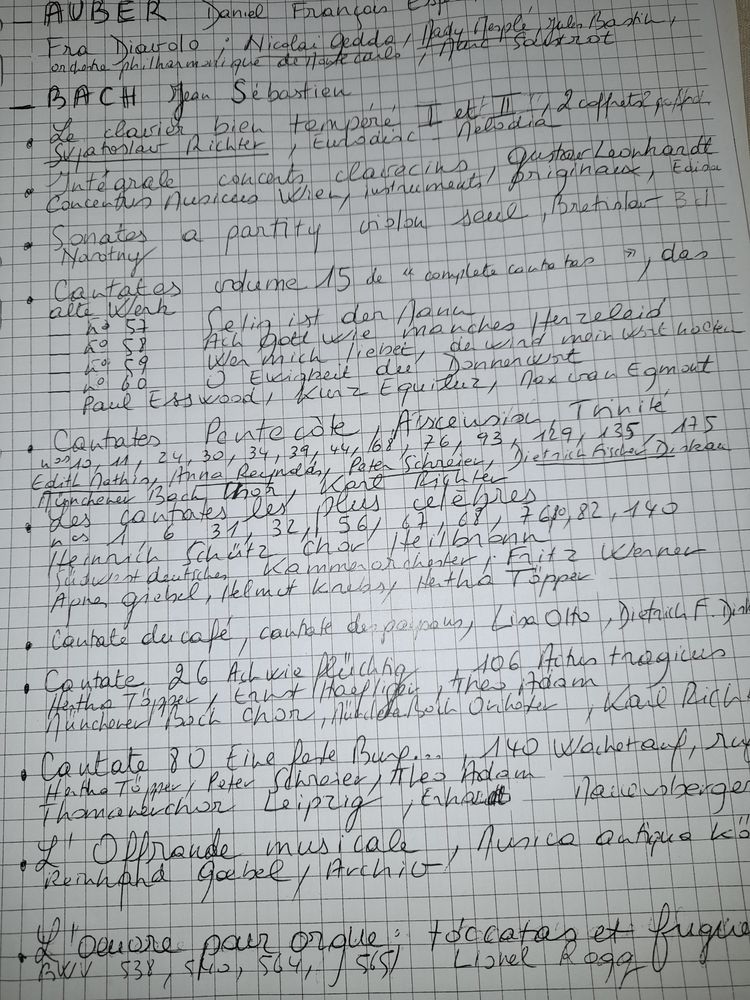 — AUBER Daniel François
Fra Diavolo : Nicolai Gedda, Mady Mesplé, Jules Bastin,
orchestre philharmonique de Monte Carlo, Marc Soustrot
— BACH Jean Sébastien
• Le clavier bien tempéré I et II, 2 coffrets
Svjatoslav Richter, Eurodisc - Melodia
• Intégrale concerts clavecins, Gustav Leonhardt
Concentus Musicus Wien, instruments originaux,
• Sonates a partity violon seul, Bretislav
Novotny
• Cantates volume 15 de "complete cantatas", das
alte Werk
— n° 57 Selig ist der Mann
— n° 58 Ach Gott wie manches Herzeleid
— n° 59 Wer mich liebet, de wird mein wort
— n° 60 O Ewigkeit du Donnerwort
Paul Esswood, Kurz Equiluz, Max van Egmont
• Cantates Pentecôte, Ascension, Trinité
nos 10, 11, 24, 30, 34, 39, 44, 68, 76, 93, 129, 135, 175
Edith Mathis, Anna Reynolds, Peter Schreier, Dietrich Fischer Diskau
Münchener Bach Chor, Karl Richter
• Les cantates les plus célèbres
nos 1, 6, 31, 32, 56, 67, 68, 82, 140
Heinrich Schütz Chor Heilbronn
Südwestdeutsches Kammerorchester, Fritz Werner
Agnes Giebel, Helmut Krebs, Hertha Töpper
• Cantate du café, cantate des paysans, Lisa Otto, Dietrich F. Disk
• Cantate 26 Ach wie flüchtig, 106 Actus tragicus
Hertha Töpper, Ernst Haefliger, Theo Adam
Münchener Bach Chor, Karl Rich
• Cantate 80 Eine feste Burg..., 140 Wachet auf, ruf
Hertha Töpper, Peter Schreier, Theo Adam
Thomanerchor Leipzig, Mauersberger
• L'Offrande musicale, Musica antiqua Kö
Reinhard Goebel, Archiv
• L'oeuvre pour orgue : toccatas et fugue
BWV 538, 540, 564, 565 Lionel Rogg